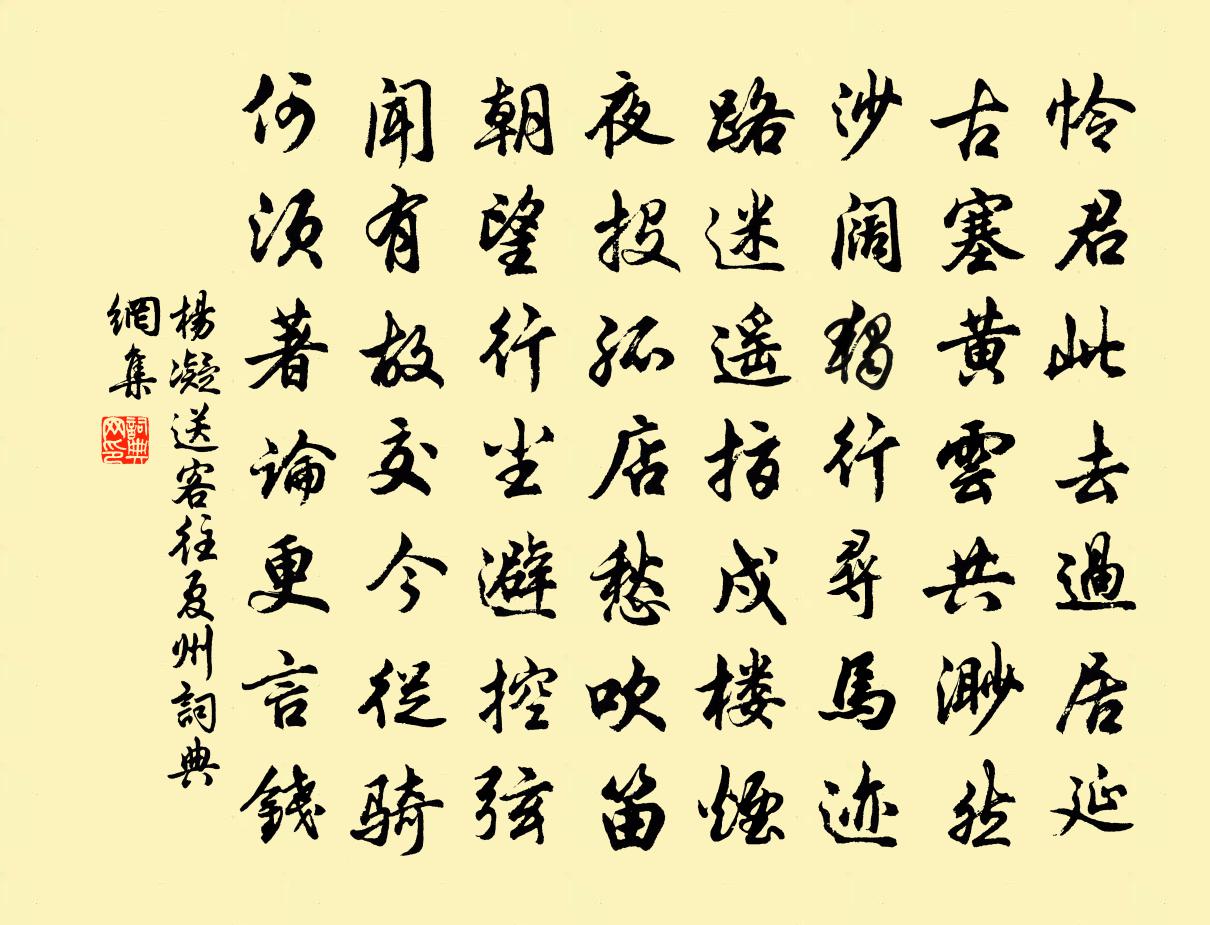 怜君此去過居延
古塞黄雲共渺然
沙阔独行尋馬迹
路迷遥指戍楼煙
夜投孤店愁吹笛
朝望行尘避控弦
闻有故交今從騎
何須著論更言錢
楊凝送客往夏州詞典
網集
詞典
网印